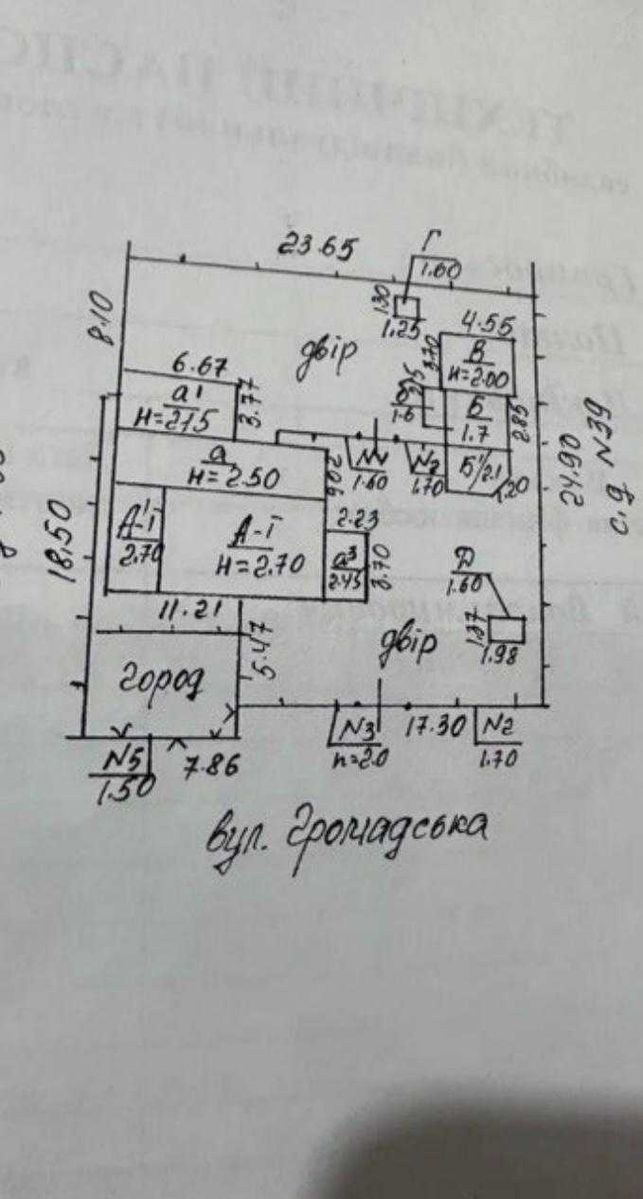 ТЕХНІЧНИЙ ПАСПО
23.65
Г
1.60
8.10
1.30
1.25
двір
4.55
3.70
В
н=2.00
6.67
а'
н=2.15
3.77
б
1.6
Б
1.7
2.85
24.90
с.д N39
а
н=2.50
N4
1.60
N2
1.70
Б'/2.1
18.50
А'-I
2.70
А-I
н=2.70
2.23
а³
2.45
3.70
Д
1.60
1.37
1.98
11.21
5.47
двір
город
N5
1.50
7.86
N3
п=2.0
17.30
N2
1.70
вул. Громадська